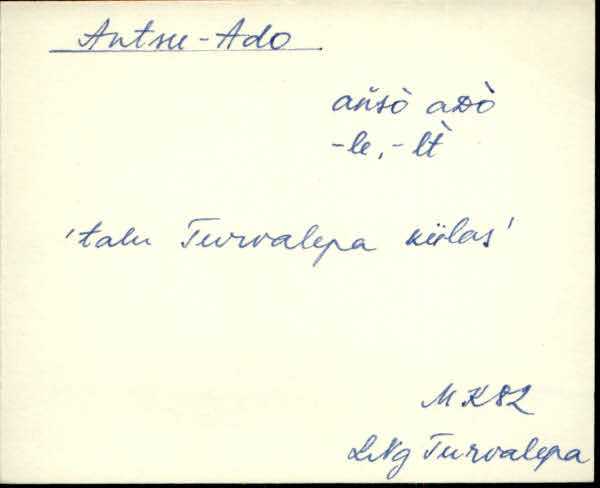 Antsu-Ado
ańsò aᴅò
-le, -lt̀
'talu Turvalepa külas'
MK82
LNg Turvalepa